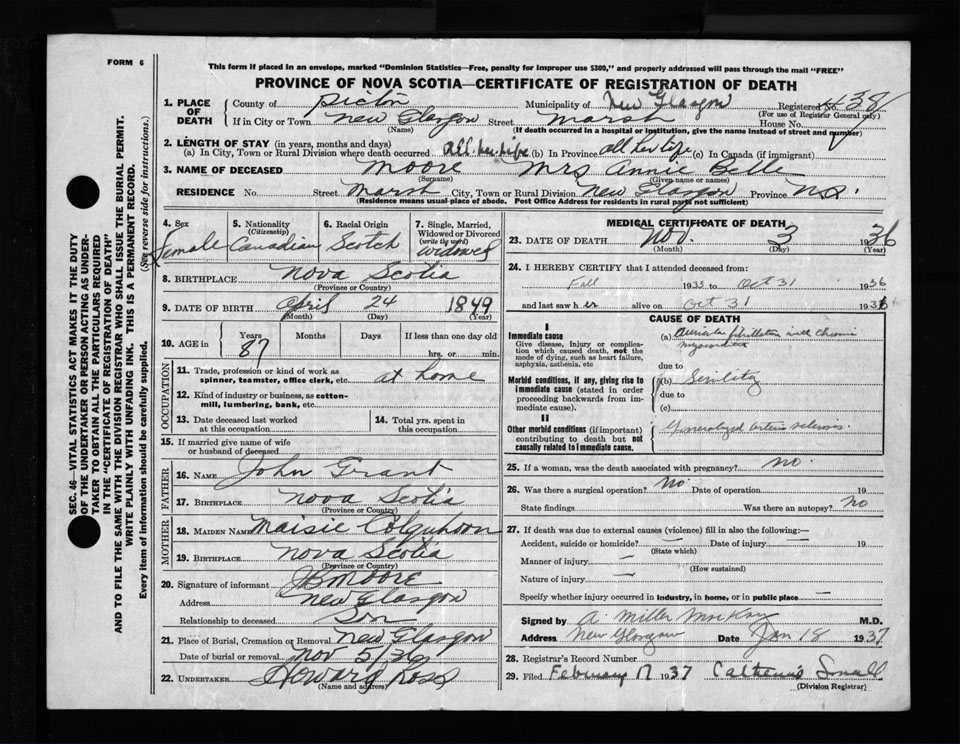 FORM 6
This form if placed in an envelope, marked "Dominion Statistics—Free, penalty for improper use $300," and properly addressed will pass through the mail "FREE"
PROVINCE OF NOVA SCOTIA—CERTIFICATE OF REGISTRATION OF DEATH
1. PLACE OF DEATH County of Pictou Municipality of New Glasgow Registered No. 438
(For use of Registrar General only)
If in City or Town New Glasgow Street Marsh House No.
(Name) (If death occurred in a hospital or institution, give the name instead of street and number)
2. LENGTH OF STAY (in years, months and days)
(a) In City, Town or Rural Division where death occurred all her life (b) In Province all her life (c) In Canada (if immigrant)
3. NAME OF DECEASED Moore Mrs Annie Belle
(Surname) (Given name or names)
RESIDENCE No. Street Marsh City, Town or Rural Division New Glasgow Province N.S.
(Residence means usual place of abode. Post Office Address for residents in rural parts not sufficient)
4. Sex Female
5. Nationality (Citizenship) Canadian
6. Racial Origin Scotch
7. Single, Married, Widowed or Divorced (write the word) Widowed
8. BIRTHPLACE Nova Scotia
(Province or Country)
9. DATE OF BIRTH April 24 1849
(Month) (Day) (Year)
10. AGE in Years Months Days If less than one day old
87 hrs. or min.
OCCUPATION
11. Trade, profession or kind of work as spinner, teamster, office clerk, etc. at home
12. Kind of industry or business, as cotton-mill, lumbering, bank, etc.
13. Date deceased last worked at this occupation
14. Total yrs. spent in this occupation
15. If married give name of wife or husband of deceased
FATHER
16. NAME John Grant
17. BIRTHPLACE Nova Scotia
(Province or Country)
MOTHER
18. MAIDEN NAME Maisie Colquhoon
19. BIRTHPLACE Nova Scotia
(Province or Country)
20. Signature of informant JB Moore
Address New Glasgow
Relationship to deceased Son
21. Place of Burial, Cremation or Removal New Glasgow
Date of burial or removal Nov 5/36
22. UNDERTAKER Howard Ross
(Name and address)
MEDICAL CERTIFICATE OF DEATH
23. DATE OF DEATH Nov. 3 1936
(Month) (Day) (Year)
24. I HEREBY CERTIFY that I attended deceased from:
Fall 1935 to Oct 31 1936
and last saw her alive on Oct 31 1936
CAUSE OF DEATH
I
Immediate cause
Give disease, injury or complication which caused death, not the mode of dying, such as heart failure, asphyxia, asthenia, etc
(a) Auricular fibrillation with Chronic myocarditis
due to
Morbid conditions, if any, giving rise to immediate cause (stated in order proceeding backwards from immediate cause).
(b) Senility
due to
(c)
II
Other morbid conditions (if important) contributing to death but not causally related to immediate cause.
Generalized arterio sclerosis.
25. If a woman, was the death associated with pregnancy? no.
26. Was there a surgical operation? No. Date of operation 19
State findings Was there an autopsy? No
27. If death was due to external causes (violence) fill in also the following:—
Accident, suicide or homicide? — Date of injury — 19
(State which)
Manner of injury —
(How sustained)
Nature of injury —
Specify whether injury occurred in industry, in home, or in public place —
Signed by A. Miller MacKay M.D.
Address New Glasgow Date Jan 18 1937
28. Registrar's Record Number
29. Filed February 17 1937 Catherine Small
(Division Registrar)
SEC. 46—VITAL STATISTICS ACT MAKES IT THE DUTY
OF THE UNDERTAKER OR PERSON ACTING AS UNDER-
TAKER TO OBTAIN ALL THE PARTICULARS REQUIRED
IN THE "CERTIFICATE OF REGISTRATION OF DEATH"
AND TO FILE THE SAME WITH THE DIVISION REGISTRAR WHO SHALL ISSUE THE BURIAL PERMIT.
WRITE PLAINLY WITH UNFADING INK. THIS IS A PERMANENT RECORD.
Every item of information should be carefully supplied. (See reverse side for instructions.)